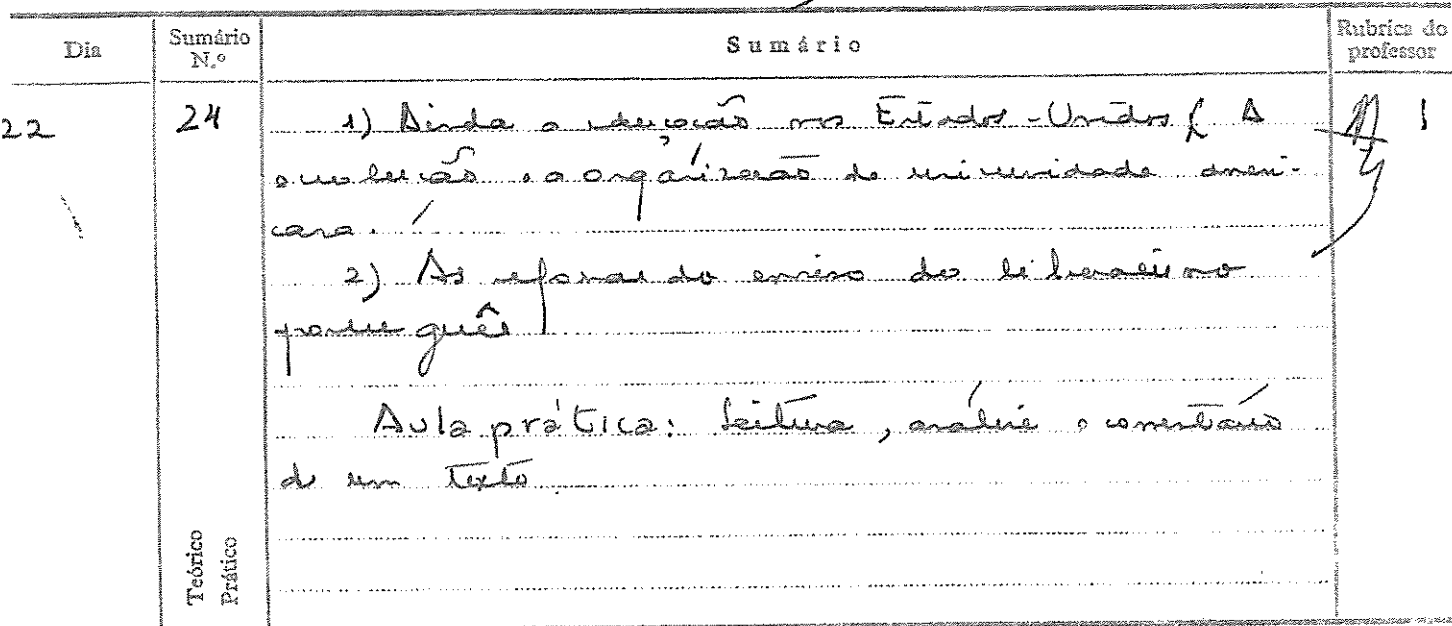 Dia
Sumário N.º
Sumário
Rubrica do professor
22
24
1) Ainda a educação nos Estados-Unidos ( A
evolução e a organização da universidade ameri-
cana.
2) As reformas do ensino do liberalismo
português
Aula prática: Leitura, análise e comentário
de um texto.
Teórico
Prático